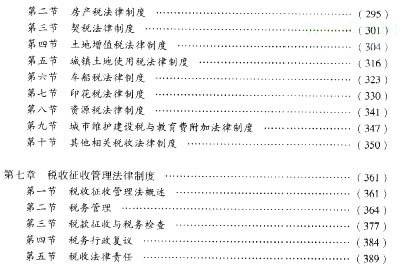 第二节 房产税法律制度 ……………………………………………（295）
第三节 契税法律制度 ………………………………………………（301）
第四节 土地增值税法律制度 ………………………………………（304）
第五节 城镇土地使用税法律制度 …………………………………（316）
第六节 车船税法律制度 ……………………………………………（323）
第七节 印花税法律制度 ……………………………………………（330）
第八节 资源税法律制度 ……………………………………………（341）
第九节 城市维护建设税与教育费附加法律制度 …………………（347）
第十节 其他相关税收法律制度 ……………………………………（350）
第七章 税收征收管理法律制度 ……………………………………（361）
第一节 税收征收管理法概述 ………………………………………（361）
第二节 税务管理 ……………………………………………………（364）
第三节 税款征收与税务检查 ………………………………………（377）
第四节 税务行政复议 ………………………………………………（384）
第五节 税收法律责任 ………………………………………………（389）